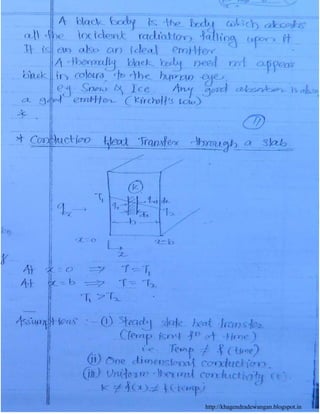 A black body is the body which absorbs
all the incident radiation falling upon it
It is an also an ideal emitter
A thermally black body need not appear
black in colours to the human eye.
e.g. Snow & Ice. Any good absorber is also
a good emitter (Kirchoff's Law)
*
11
* Conduction Heat Transfer through a slab
K
T₁
T₂
qx
b
x=0
x=b
x
At x=0 ⇒ T=T₁
At x=b ⇒ T=T₂
T₁ > T₂
Assumptions :- (i) Steady state heat transfer
(Temp isn't fⁿ of time)
i.e. Temp ≠ f(time)
(ii) One dimensional conduction.
(iii) Uniform thermal conductivity (K).
K ≠ f(x) ≠ f(temp)
http://khagendradewangan.blogspot.in